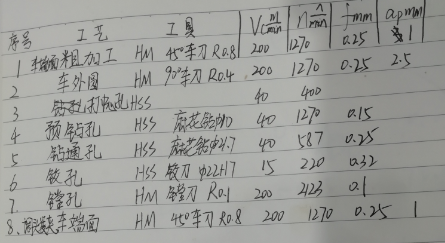 序号 工艺 工具 Vc m/min n n/min f mm ap mm
1 车端面粗加工 HM 45°车刀 R0.8 200 1270 0.25 1
2 车外圆 HM 90°车刀 R0.4 200 1270 0.25 2.5
3 钻孔打中心孔 HSS 40 400
4 预钻孔 HSS 麻花钻φ10 40 1270 0.15
5 钻通孔 HSS 麻花钻φ21.7 40 587 0.25
6 铰孔 HSS 铰刀 φ22H7 15 220 0.32
7 镗孔 HM 镗刀 R0.1 200 2123 0.1
8、车端面 HM 45°车刀 R0.8 200 1270 0.25 1